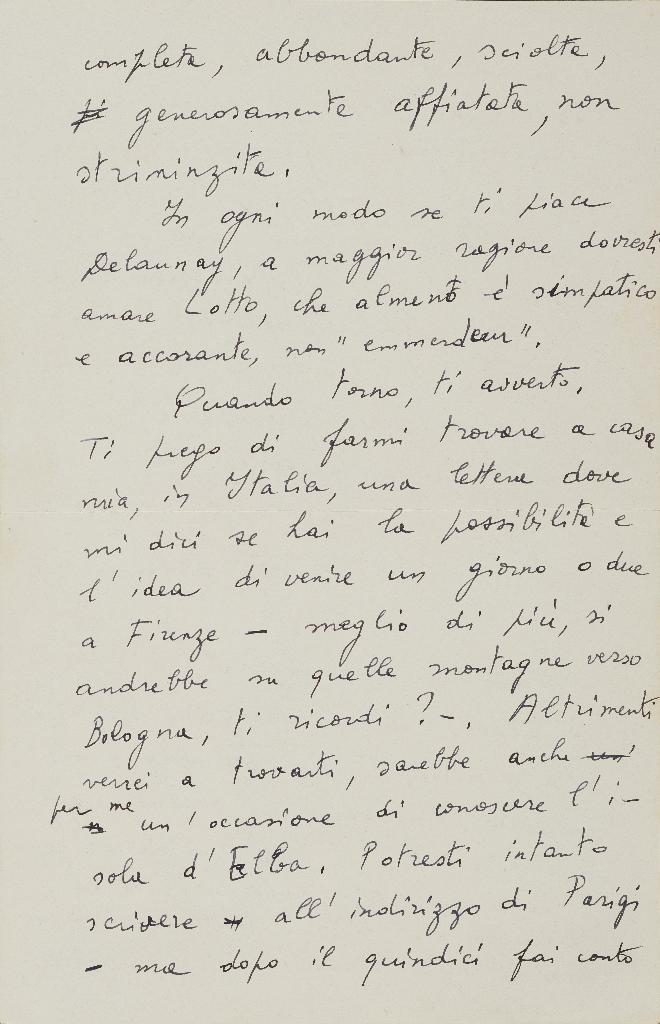 completa, abbondante, sciolta,
generosamente affiatata, non
striminzita.
In ogni modo se ti piace
Delaunay, a maggior ragione dovresti
amare Lotto, che almeno è simpatico
e accorante, non "emmerdeur".
Quando torno, ti avverto.
Ti prego di farmi trovare a casa
mia, in Italia, una lettera dove
mi dici se hai la possibilità e
l'idea di venire un giorno o due
a Firenze - meglio di più, si
andrebbe su quelle montagne verso
Bologna, ti ricordi? -. Altrimenti
verrei a trovarti, sarebbe anche un'
per me
un'occasione di conoscere l'i-
sola d'Elba. Potresti intanto
scrivere all'indirizzo di Parigi
- ma dopo il quindici fai conto